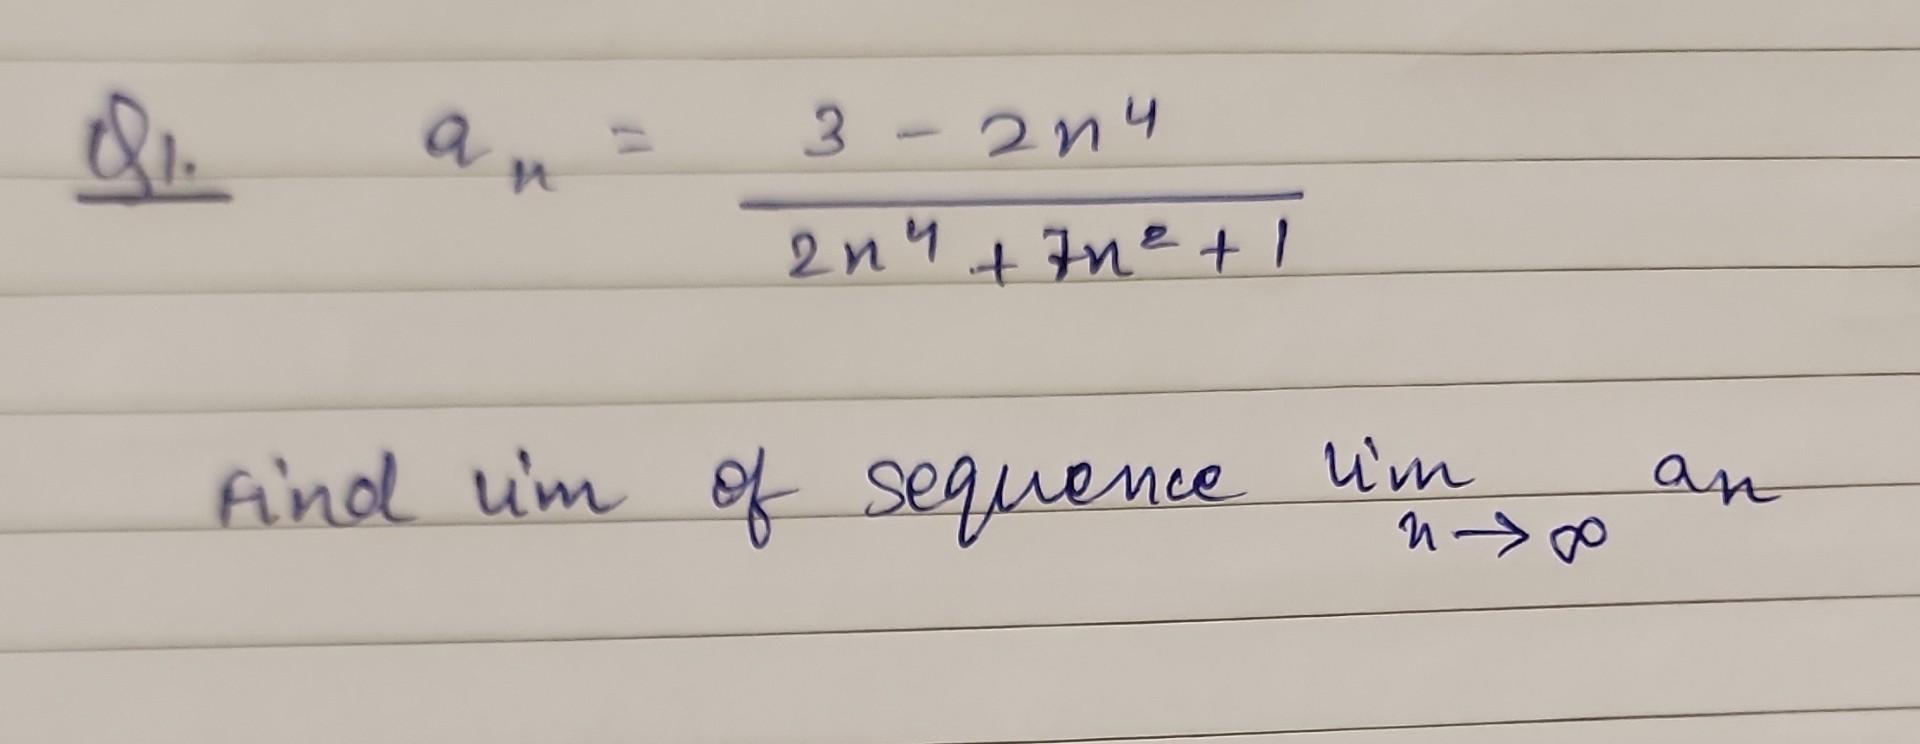 Q1. aₙ = 3 - 2n⁴
2n⁴ + 7n² + 1
Find lim of sequence lim aₙ
n → ∞